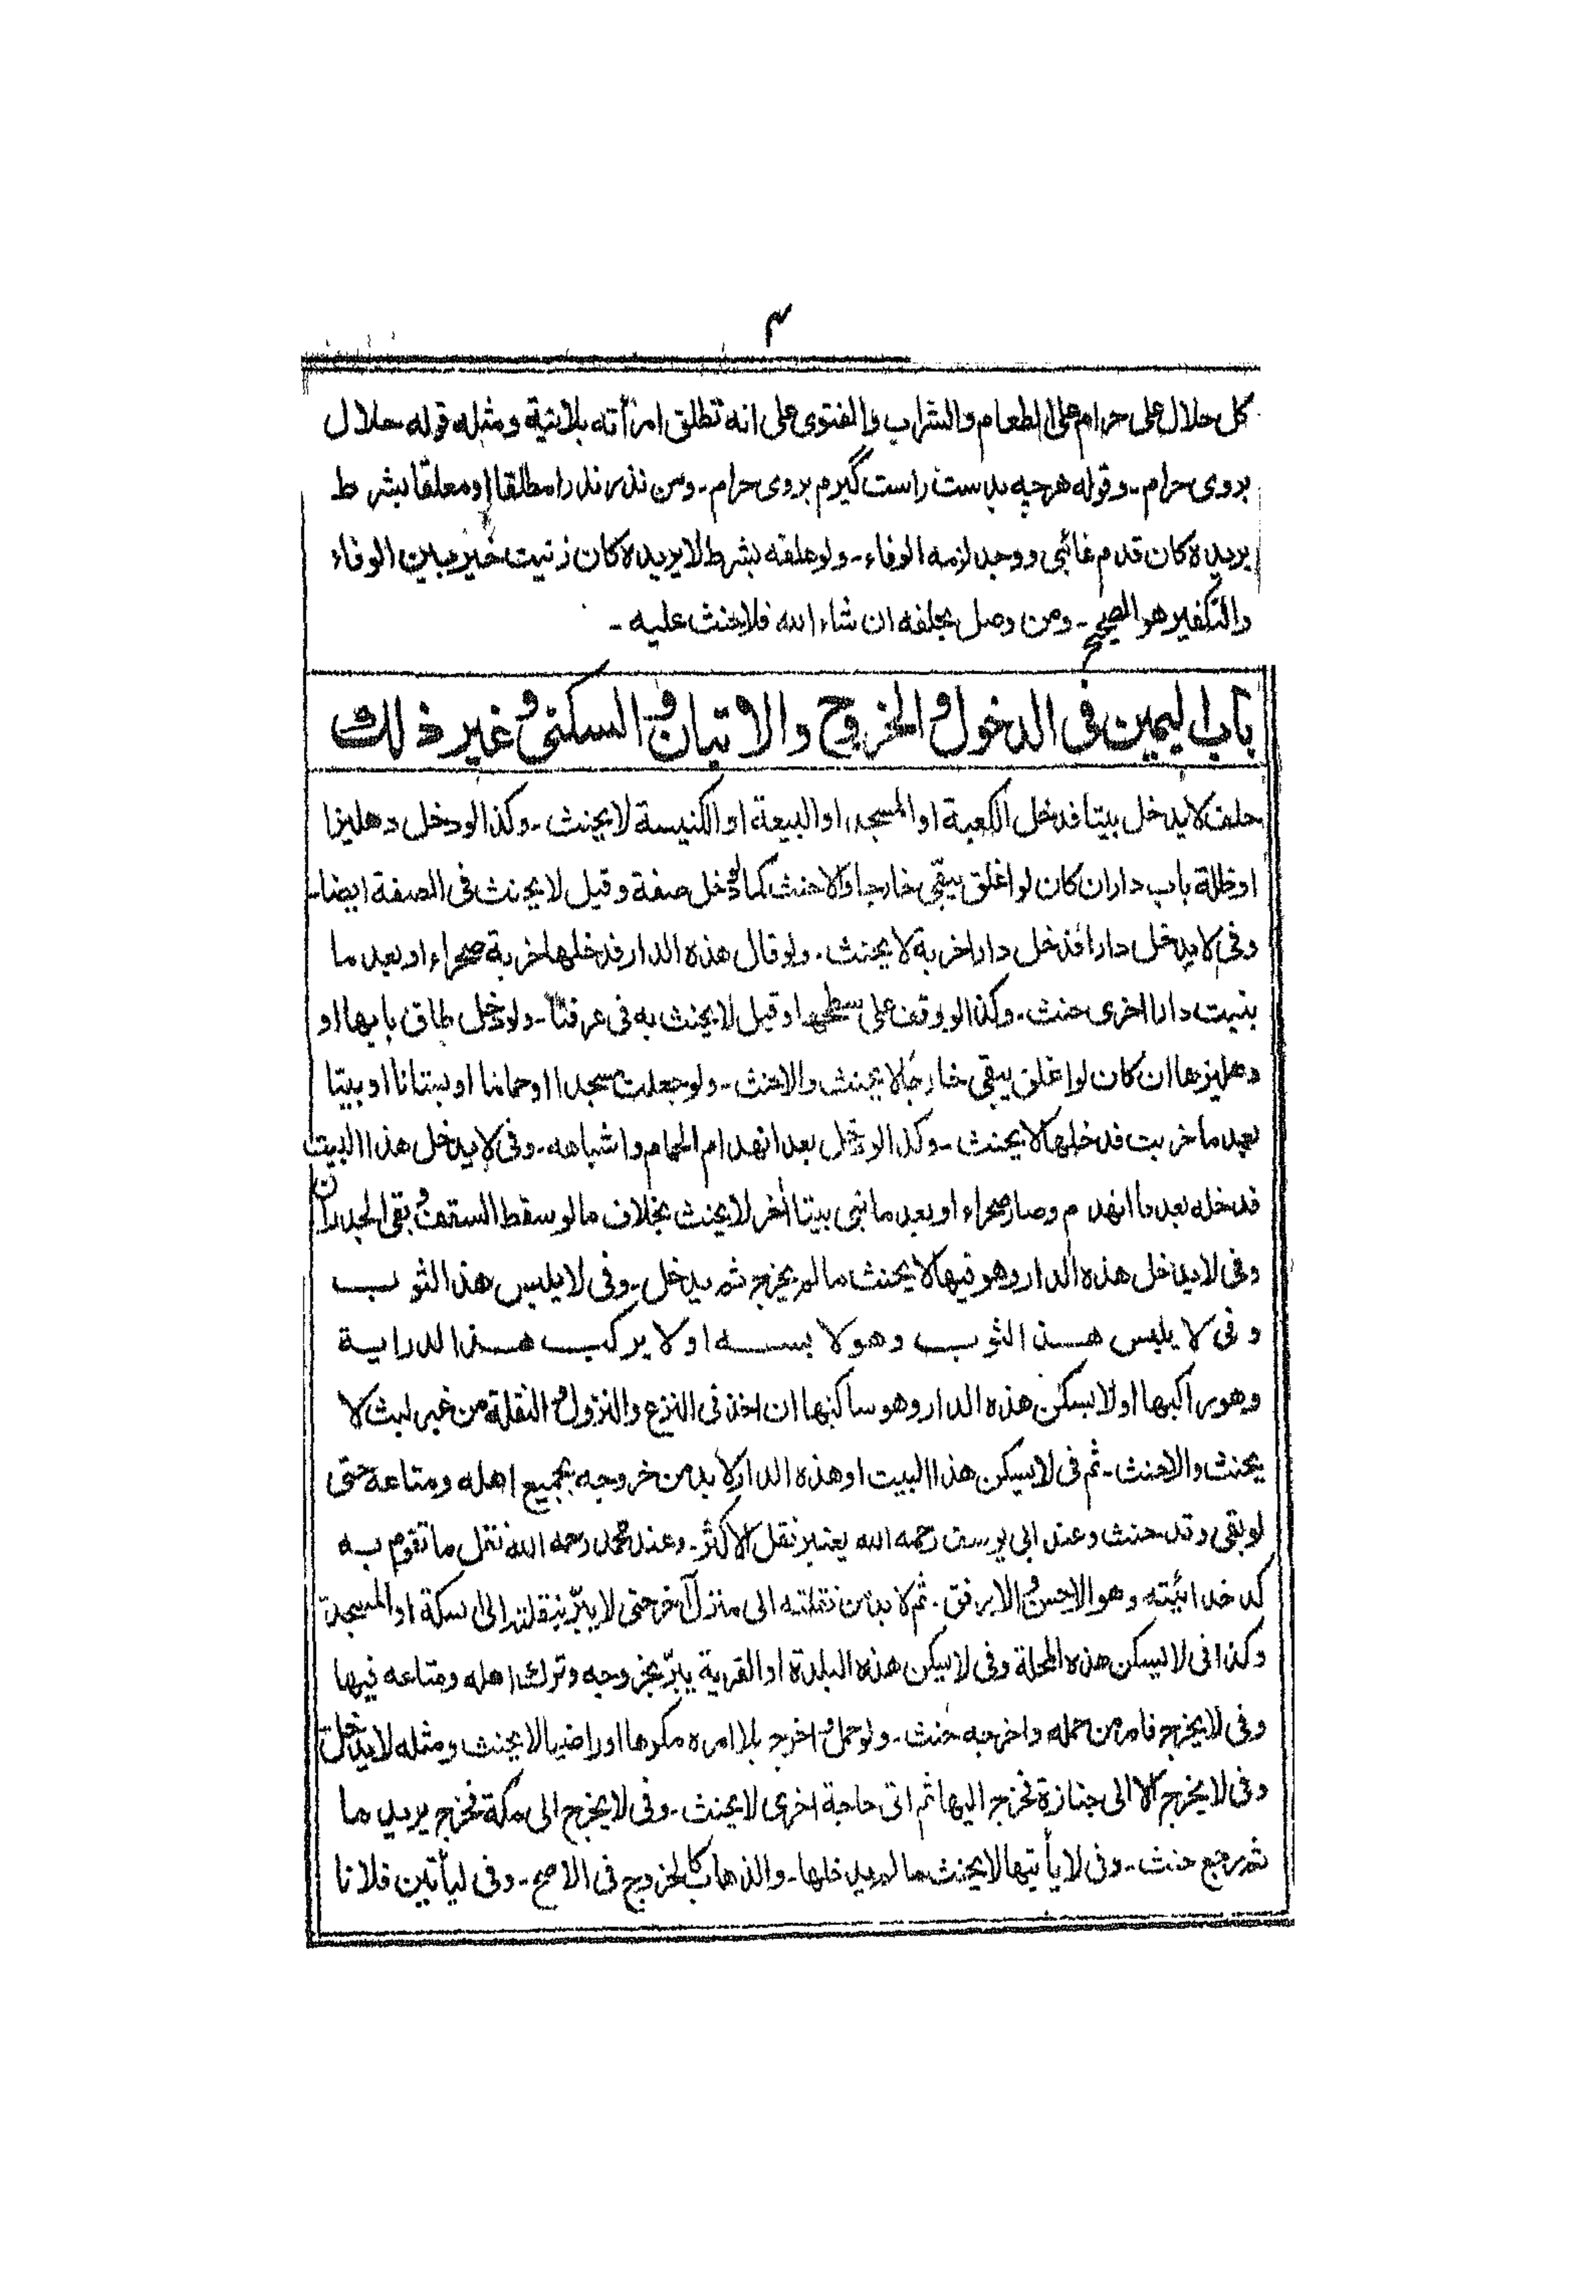 ٣
كل حلال على حرام على الطعام والشراب والفتوى على انه تطلق امرأته بلانية ومثله قوله حلال
بروى حرام ـ وقوله هرچه بدست راست گيرم بروى حرام ـ ومن نذر نذرا مطلقا اومعلقا بشرط
يريده كان قدم غائبى ووجد لزمه الوفاء ـ ولو علقه بشرط لايريده كان زنيت خير بين الوفاء
والتكفير هو الصحيح ـ ومن وصل بحلفه ان شاء الله فلاحنث عليه ـ
باب اليمين فى الدخول والخروج والاتيان والسكنى وغير ذلك
حلف لايدخل بيتا فدخل الكعبة اوالمسجد اوالبيعة اوالكنيسة لايحنث ـ وكذا لودخل دهليزا
اوظلة باب دار ان كان لواغلق يبقى خارجا والاحنث كما لودخل صفة وقيل لايحنث فى الصفة ايضا ـ
وفى لايدخل دارا فدخل دارا خربة لايحنث ـ ولو قال هذه الدار فدخلها خربة صحراء اوبعد ما
بنيت دارا اخرى حنث ـ وكذا لووقف على سطحها وقيل لايحنث به فى عرفنا ـ ولودخل طاق بابها او
دهليزها ان كان لواغلق يبقى خارجا لايحنث والاحنث ـ ولوجعلت مسجدا اوحماما اوبستانا اوبيتا
بعد ماخربت فدخلها لايحنث ـ وكذا لودخل بعد انهدام الحمام واشباهه ـ وفى لايدخل هذا البيت
فدخله بعد ما انهدم وصار صحراء اوبعد مابنى بيتا آخر لايحنث بخلاف مالوسقط السقف وبقى الجدران
وفى لايدخل هذه الدار وهو فيها لايحنث مالم يخرج ثم يدخل ـ وفى لايلبس هذا الثوب
وفى لا يلبس هذا الثوب وهو لابسه اولا يركب هذا الدراية
وهو راكبها اولايسكن هذه الدار وهو ساكنها ان اخذ فى النزع والنزول والنقلة من غير لبث لا
يحنث والاحنث ـ ثم فى لايسكن هذا البيت اوهذه الدار لابد من خروجه بجميع اهله ومتاعه حتى
لوبقى وتد حنث وعند ابى يوسف رحمه الله يعتبر نقل الاكثر ـ وعند محمد رحمه الله نقل ماتقوم به
كدخدائيته وهو الاحسن والارفق ـ ثم لابد من نقلته الى منزل آخر حتى لايبرّ بنقلته الى السكة اوالمسجد
وكذا فى لايسكن هذه المحلة وفى لايسكن هذه البلدة اوالقرية يبرّ بخروجه وترك اهله ومتاعه فيها
وفى لايخرج فامر من حمله واخرجه حنث ـ ولوحمل واخرج بلا امره مكرها اوراضيا لايحنث ومثله لايدخل
وفى لايخرج الا الى جنازة فخرج اليها ثم اتى حاجة اخرى لايحنث ـ وفى لايخرج الى مكة فخرج يريدها
ثم رجع حنث ـ وفى لايأتيها لايحنث مالم يدخلها ـ والذهاب كالخروج فى الاصح ـ وفى ليأتين فلانا